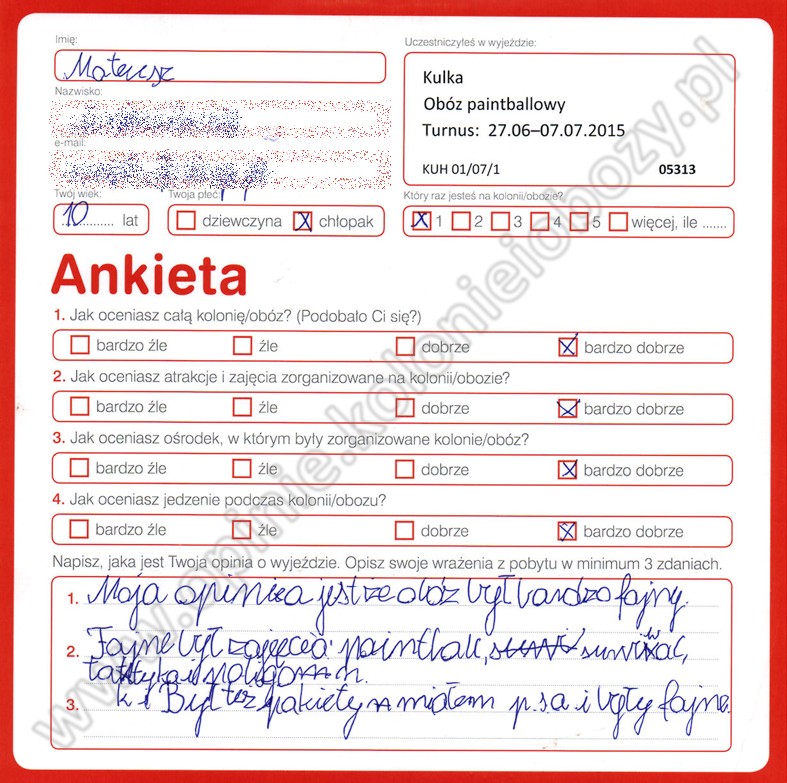 Imię:
Mateusz
Uczestniczyłeś w wyjeździe:
Kulka
Obóz paintballowy
Turnus: 27.06–07.07.2015
KUH 01/07/1 05313
Nazwisko:
e-mail:
Twój wiek:
10 lat
Twoja płeć
dziewczyna X chłopak
Który raz jesteś na kolonii/obozie?
X 1 2 3 4 5 więcej, ile .......
Ankieta
1. Jak oceniasz całą kolonię/obóz? (Podobało Ci się?)
bardzo źle źle dobrze X bardzo dobrze
2. Jak oceniasz atrakcje i zajęcia zorganizowane na kolonii/obozie?
bardzo źle źle dobrze X bardzo dobrze
3. Jak oceniasz ośrodek, w którym były zorganizowane kolonie/obóz?
bardzo źle źle dobrze X bardzo dobrze
4. Jak oceniasz jedzenie podczas kolonii/obozu?
bardzo źle źle dobrze X bardzo dobrze
Napisz, jaka jest Twoja opinia o wyjeździe. Opisz swoje wrażenia z pobytu w minimum 3 zdaniach.
1. Moja opinia jest że obóz był bardzo fajny.
2. Fajne był zajęcia: paintball,
taktyka i
3. Był też pakiety miałem p.s.a i były fajne.
www.opinie.kolonieiobozy.pl